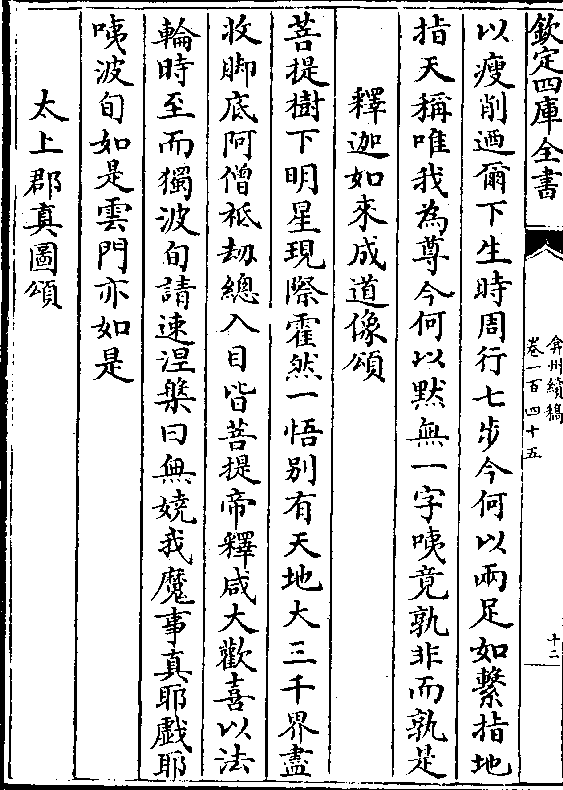 欽定四庫全書
弇州續稿
卷一百四十五
十二
以瘦削迺爾下生時周行七步今何以兩足如繫指地
指天稱唯我為尊今何以默無一字咦竟孰非而孰是
釋迦如來成道像頌
菩提樹下明星現際霍然一悟别有天地大三千界盡
收脚底阿僧祗劫總入目眥菩提帝釋咸大歡喜以法
輪時至而獨波旬請速涅槃曰無嬈我魔事真耶戱耶
咦波旬如是雲門亦如是
太上郡真圖頌